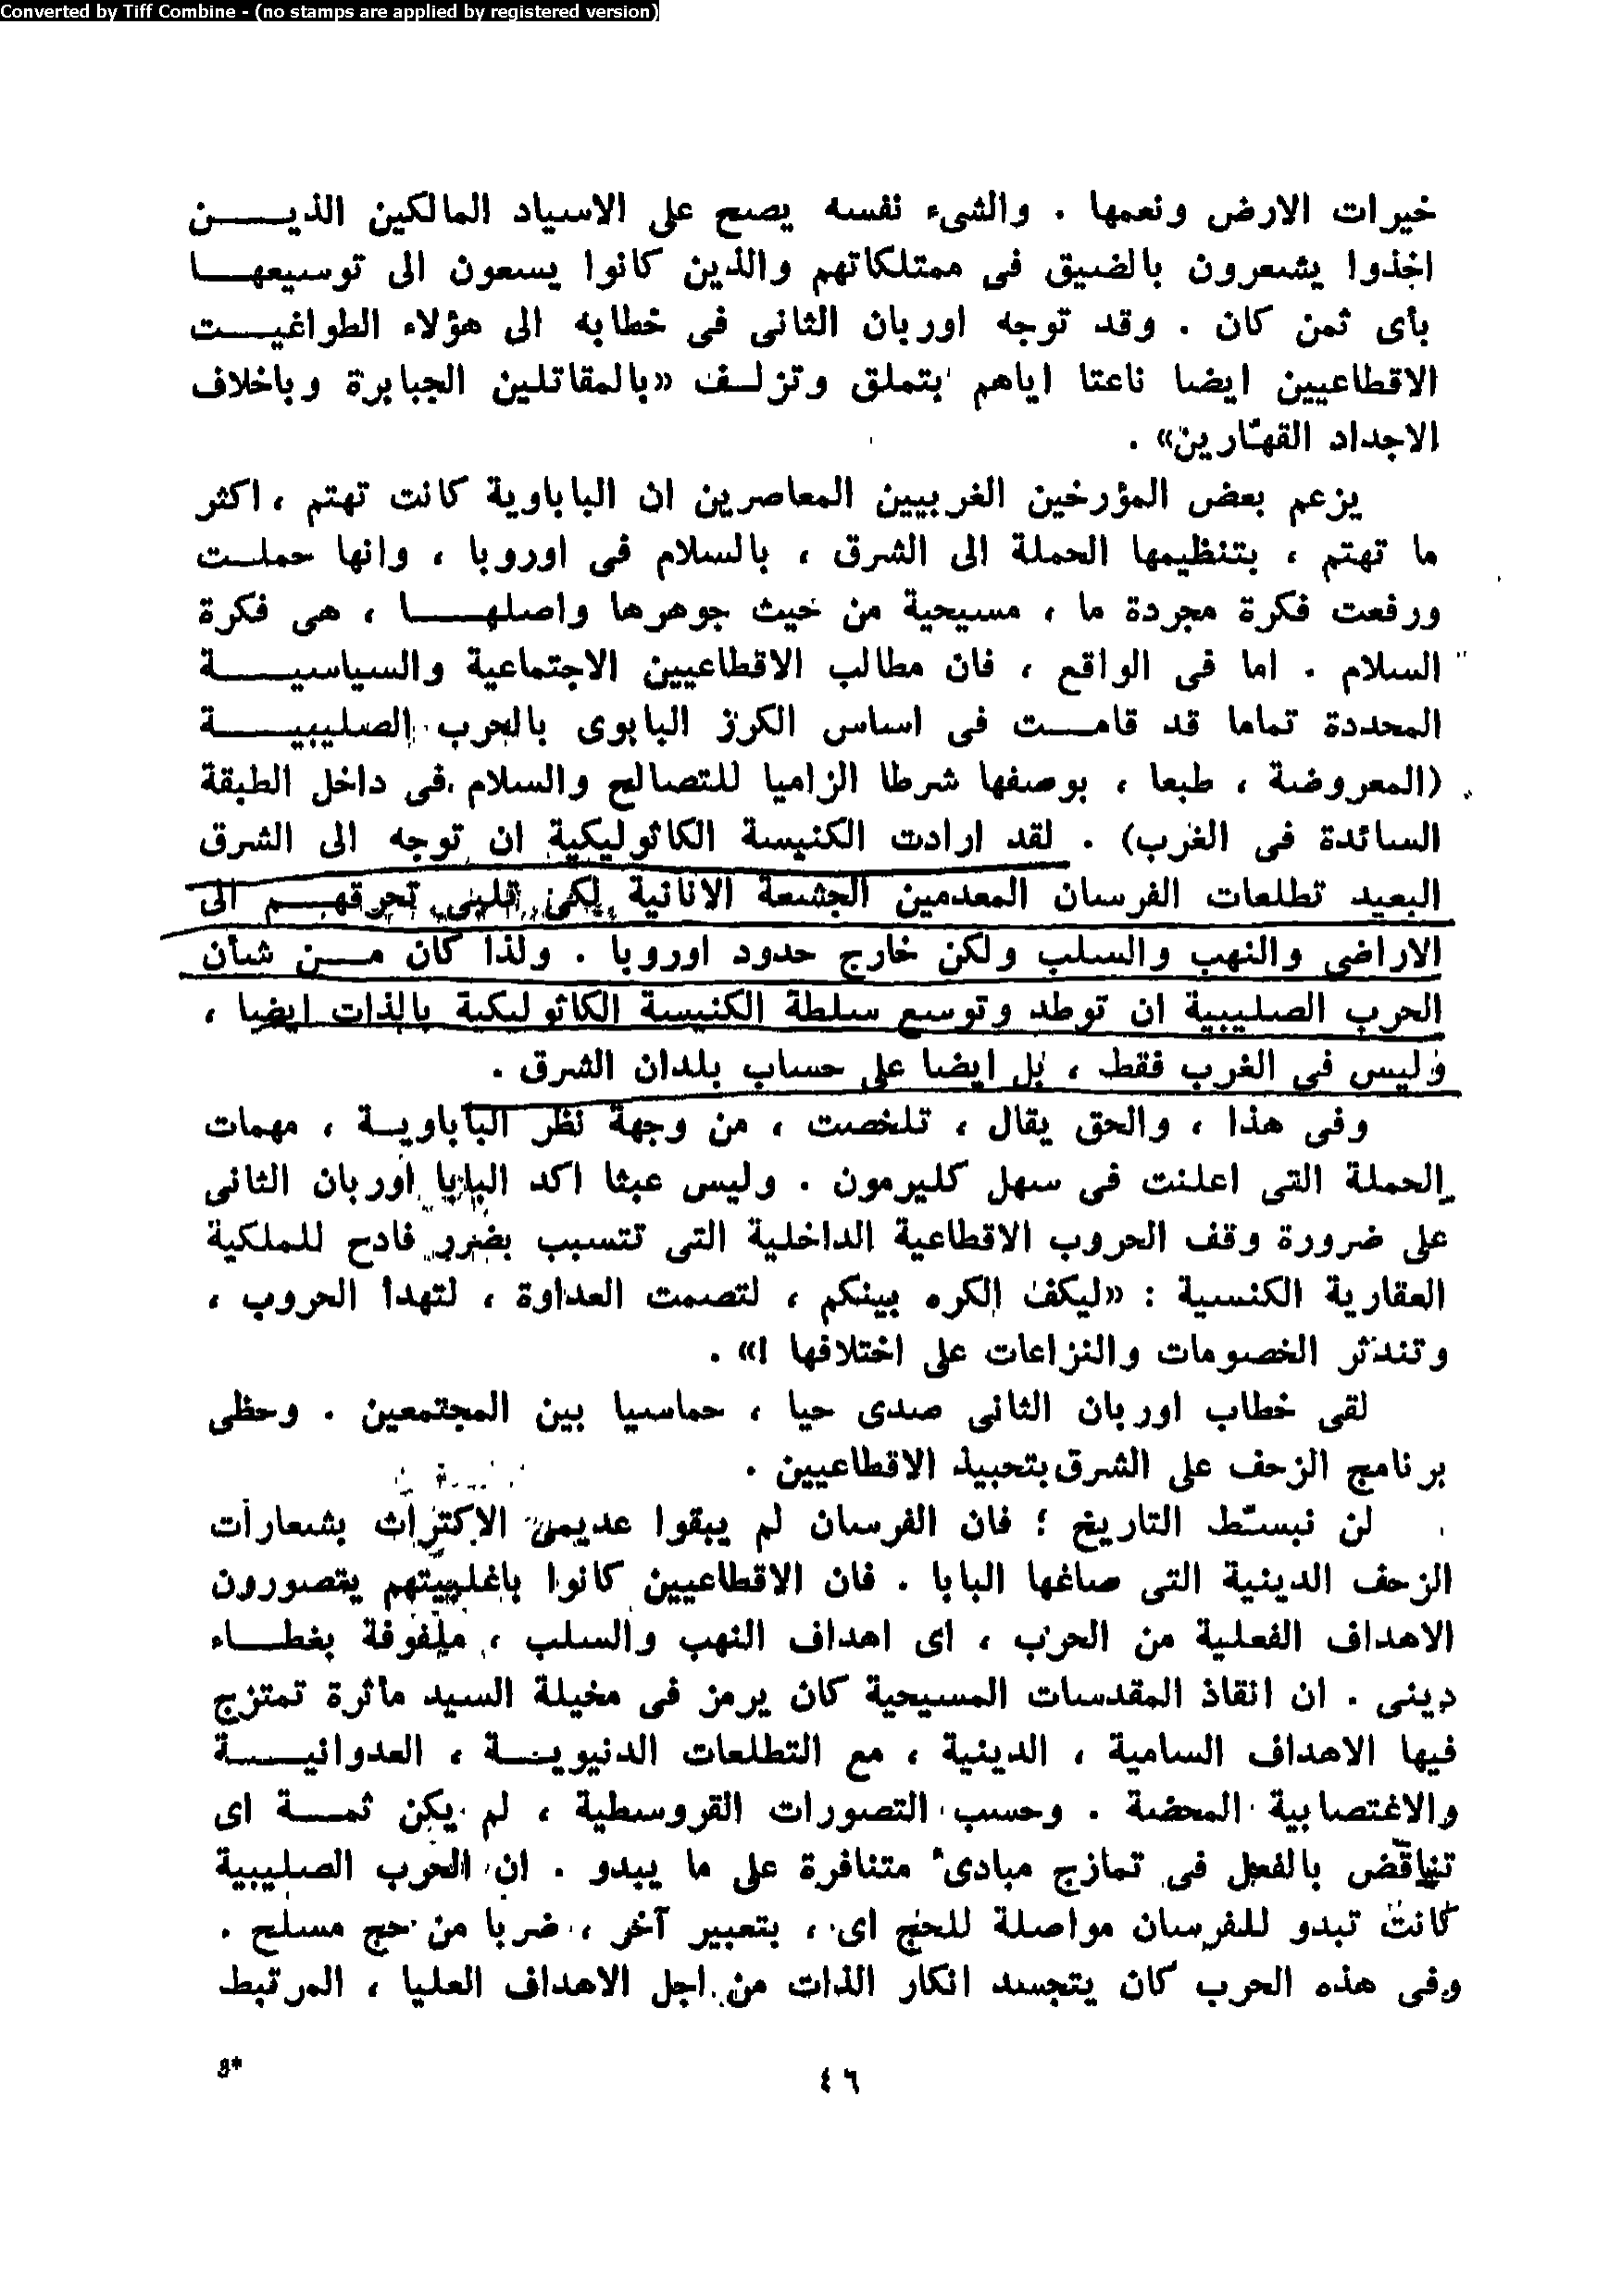 Converted by Tiff Combine - (no stamps are applied by registered version)
خيرات الارض ونعمها . والشىء نفسه يصح على الاسياد المالكين الذيـــن
اخذوا يشعرون بالضيق فى ممتلكاتهم والذين كانوا يسعون الى توسيعهـــا
بأى ثمن كان . وقد توجه اوربان الثانى فى خطابه الى هؤلاء الطواغيـــت
الاقطاعيين ايضا ناعتا اياهم بتملق وتزلـف «بالمقاتلين الجبابرة وباخلاف
الاجداد القهّارين» .
يزعم بعض المؤرخين الغربيين المعاصرين ان الباباوية كانت تهتم ، اكثر
ما تهتم ، بتنظيمها الحملة الى الشرق ، بالسلام فى اوروبا ، وانها حملـت
ورفعت فكرة مجردة ما ، مسيحية من حيث جوهرها واصلهـــا ، هى فكرة
السلام . اما فى الواقع ، فان مطالب الاقطاعيين الاجتماعية والسياسيـــة
المحددة تماما قد قامــت فى اساس الكرز البابوى بالحرب الصليبيـــة
(المعروضة ، طبعا ، بوصفها شرطا الزاميا للتصالح والسلام فى داخل الطبقة
السائدة فى الغرب) . لقد ارادت الكنيسة الكاثوليكية ان توجه الى الشرق
البعيد تطلعات الفرسان المعدمين الجشعة الانانية لكى تلبى تحرقهــم الى
الاراضى والنهب والسلب ولكن خارج حدود اوروبا . ولذا كان مــن شأن
الحرب الصليبية ان توطد وتوسع سلطة الكنيسة الكاثوليكية بالذات ايضا ،
وليس فى الغرب فقط ، بل ايضا على حساب بلدان الشرق .
وفى هذا ، والحق يقال ، تلخصت ، من وجهة نظر الباباويـة ، مهمات
الحملة التى اعلنت فى سهل كليرمون . وليس عبثا اكد البابا اوربان الثانى
على ضرورة وقف الحروب الاقطاعية الداخلية التى تتسبب بضرر فادح للملكية
العقارية الكنسية : «ليكف الكره بينكم ، لتصمت العداوة ، لتهدأ الحروب ،
وتندثر الخصومات والنزاعات على اختلافها !» .
لقى خطاب اوربان الثانى صدى حيا ، حماسيا بين المجتمعين . وحظى
برنامج الزحف على الشرق بتحبيذ الاقطاعيين .
لن نبسّط التاريخ ؛ فان الفرسان لم يبقوا عديمى الاكتراث بشعارات
الزحف الدينية التى صاغها البابا . فان الاقطاعيين كانوا باغلبيتهم يتصورون
الاهداف الفعلية من الحرب ، اى اهداف النهب والسلب ، ملفوفة بغطــاء
دينى . ان انقاذ المقدسات المسيحية كان يرمز فى مخيلة السيد مأثرة تمتزج
فيها الاهداف السامية ، الدينية ، مع التطلعات الدنيويـــة ، العدوانيـــة
والاغتصابية المحضة . وحسب التصورات القروسطية ، لم يكن ثمــة اى
تناقض بالفعل فى تمازج مبادىء متنافرة على ما يبدو . ان الحرب الصليبية
كانت تبدو للفرسان مواصلة للحج اى ، بتعبير آخر ، ضربا من حج مسلح .
وفى هذه الحرب كان يتجسد انكار الذات من اجل الاهداف العليا ، المرتبط
٤٦